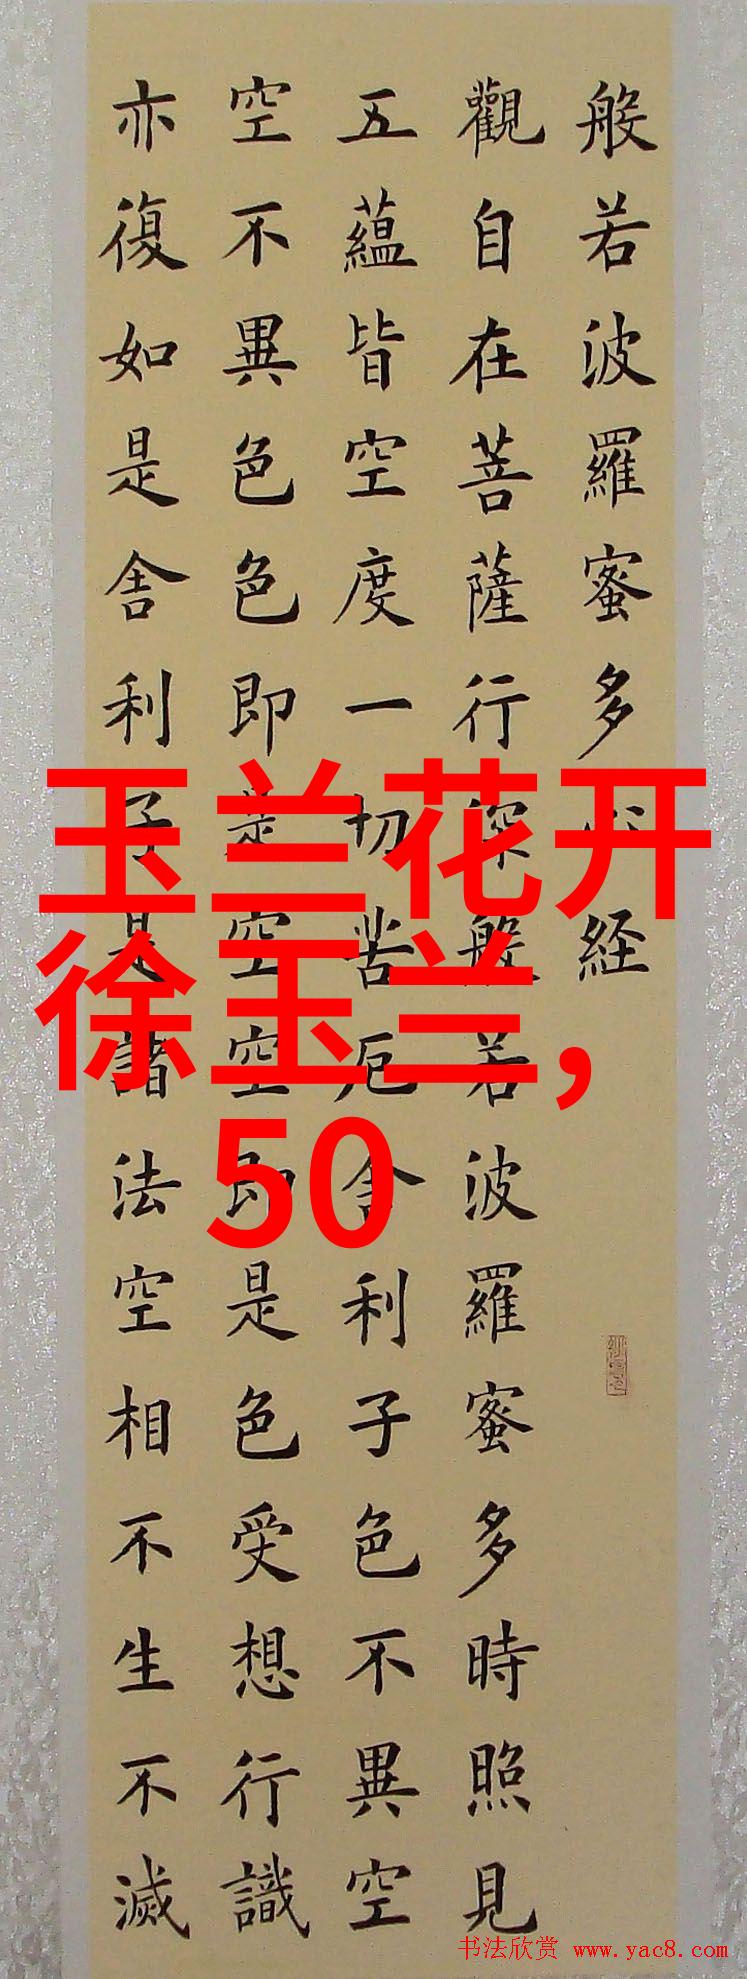 般若波羅蜜多心経
觀自在菩薩行深般若波羅蜜多時照見
五蘊皆空度一切苦厄舍利子色不異空
空不異色色即是空空即是色受想行識
亦復如是舍利子是諸法空相不生不滅
玉兰花开
徐玉兰,
50
书法欣赏 www.yac8.com